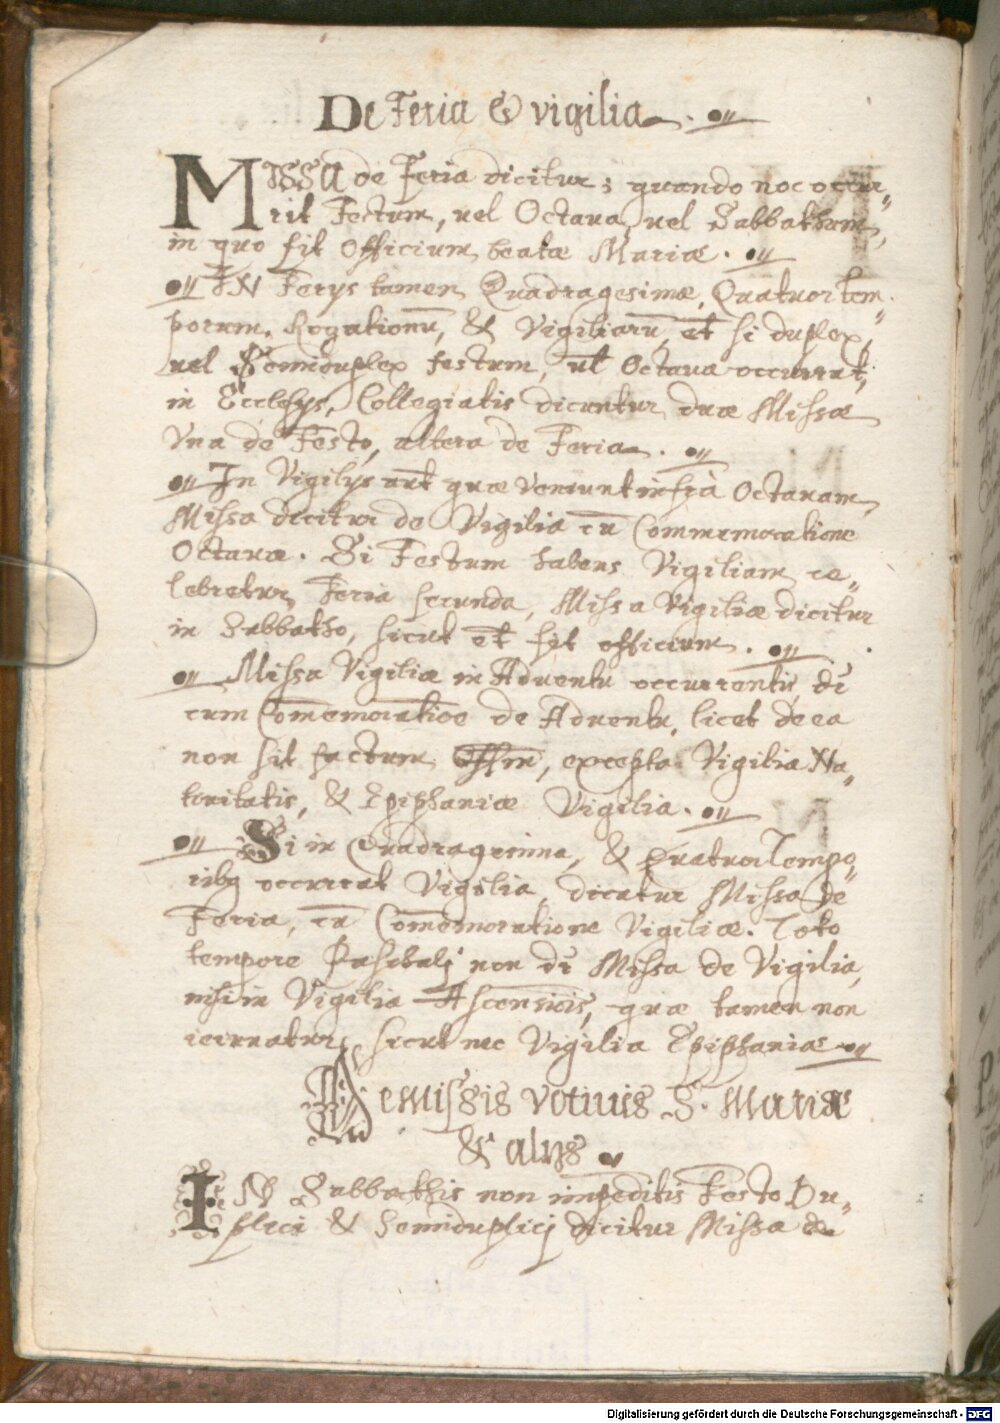 De Feria & vigilia.
MISSA de Feria dicitur; quando noc occur„
rit Festum, vel Octava, vel Sabbathum,
in quo fit Officium beatæ Mariæ.
IN Ferys tamen Quadragesimæ, Quatuor tem„
porum, Rogationū, & Vigiliarū, et si duplex,
vel Semiduplex festum, vel Octava occurrat,
in Ecclesys, Collegiatis dicuntur duæ Missæ
Vna de Festo, altera de Feria.
In Vigilys aut quæ veniunt infra Octavam,
Missa dicitur de Vigilia cū Commemoratione
Octavæ. Si Festum habens Vigiliam ce„
lebretur Feria secunda, Missa Vigiliæ dicitur
in Sabbatho, sicut et fit officium.
Missa Vigiliæ in Adventu occurrentis, dr̄
cum Com̄emoratiōe de Adventu, licet de ea
non sit factum Off̄m, excepta Vigilia Na„
tivitatis, & Epiphaniæ Vigilia.
Si in Quadragesima, & Quatuor Tempo„
ribq occurrat Vigilia, dicatur Missa de
Feria, cū Com̄emoratione Vigiliæ. Toto
tempore Paschalj non dr̄ Missa de Vigilia,
nisi in Vigilia Ascensiōis, quæ tamen non
ieiunatur, sicut nec Vigilia Epiphaniæ
De Missis Votivis S. Mariæ
& alys
IN Sabbathis non impeditis Festo Du„
plici & Semiduplicj dicitur Missa de
Digitalisierung gefördert durch die Deutsche Forschungsgemeinschaft - DFG